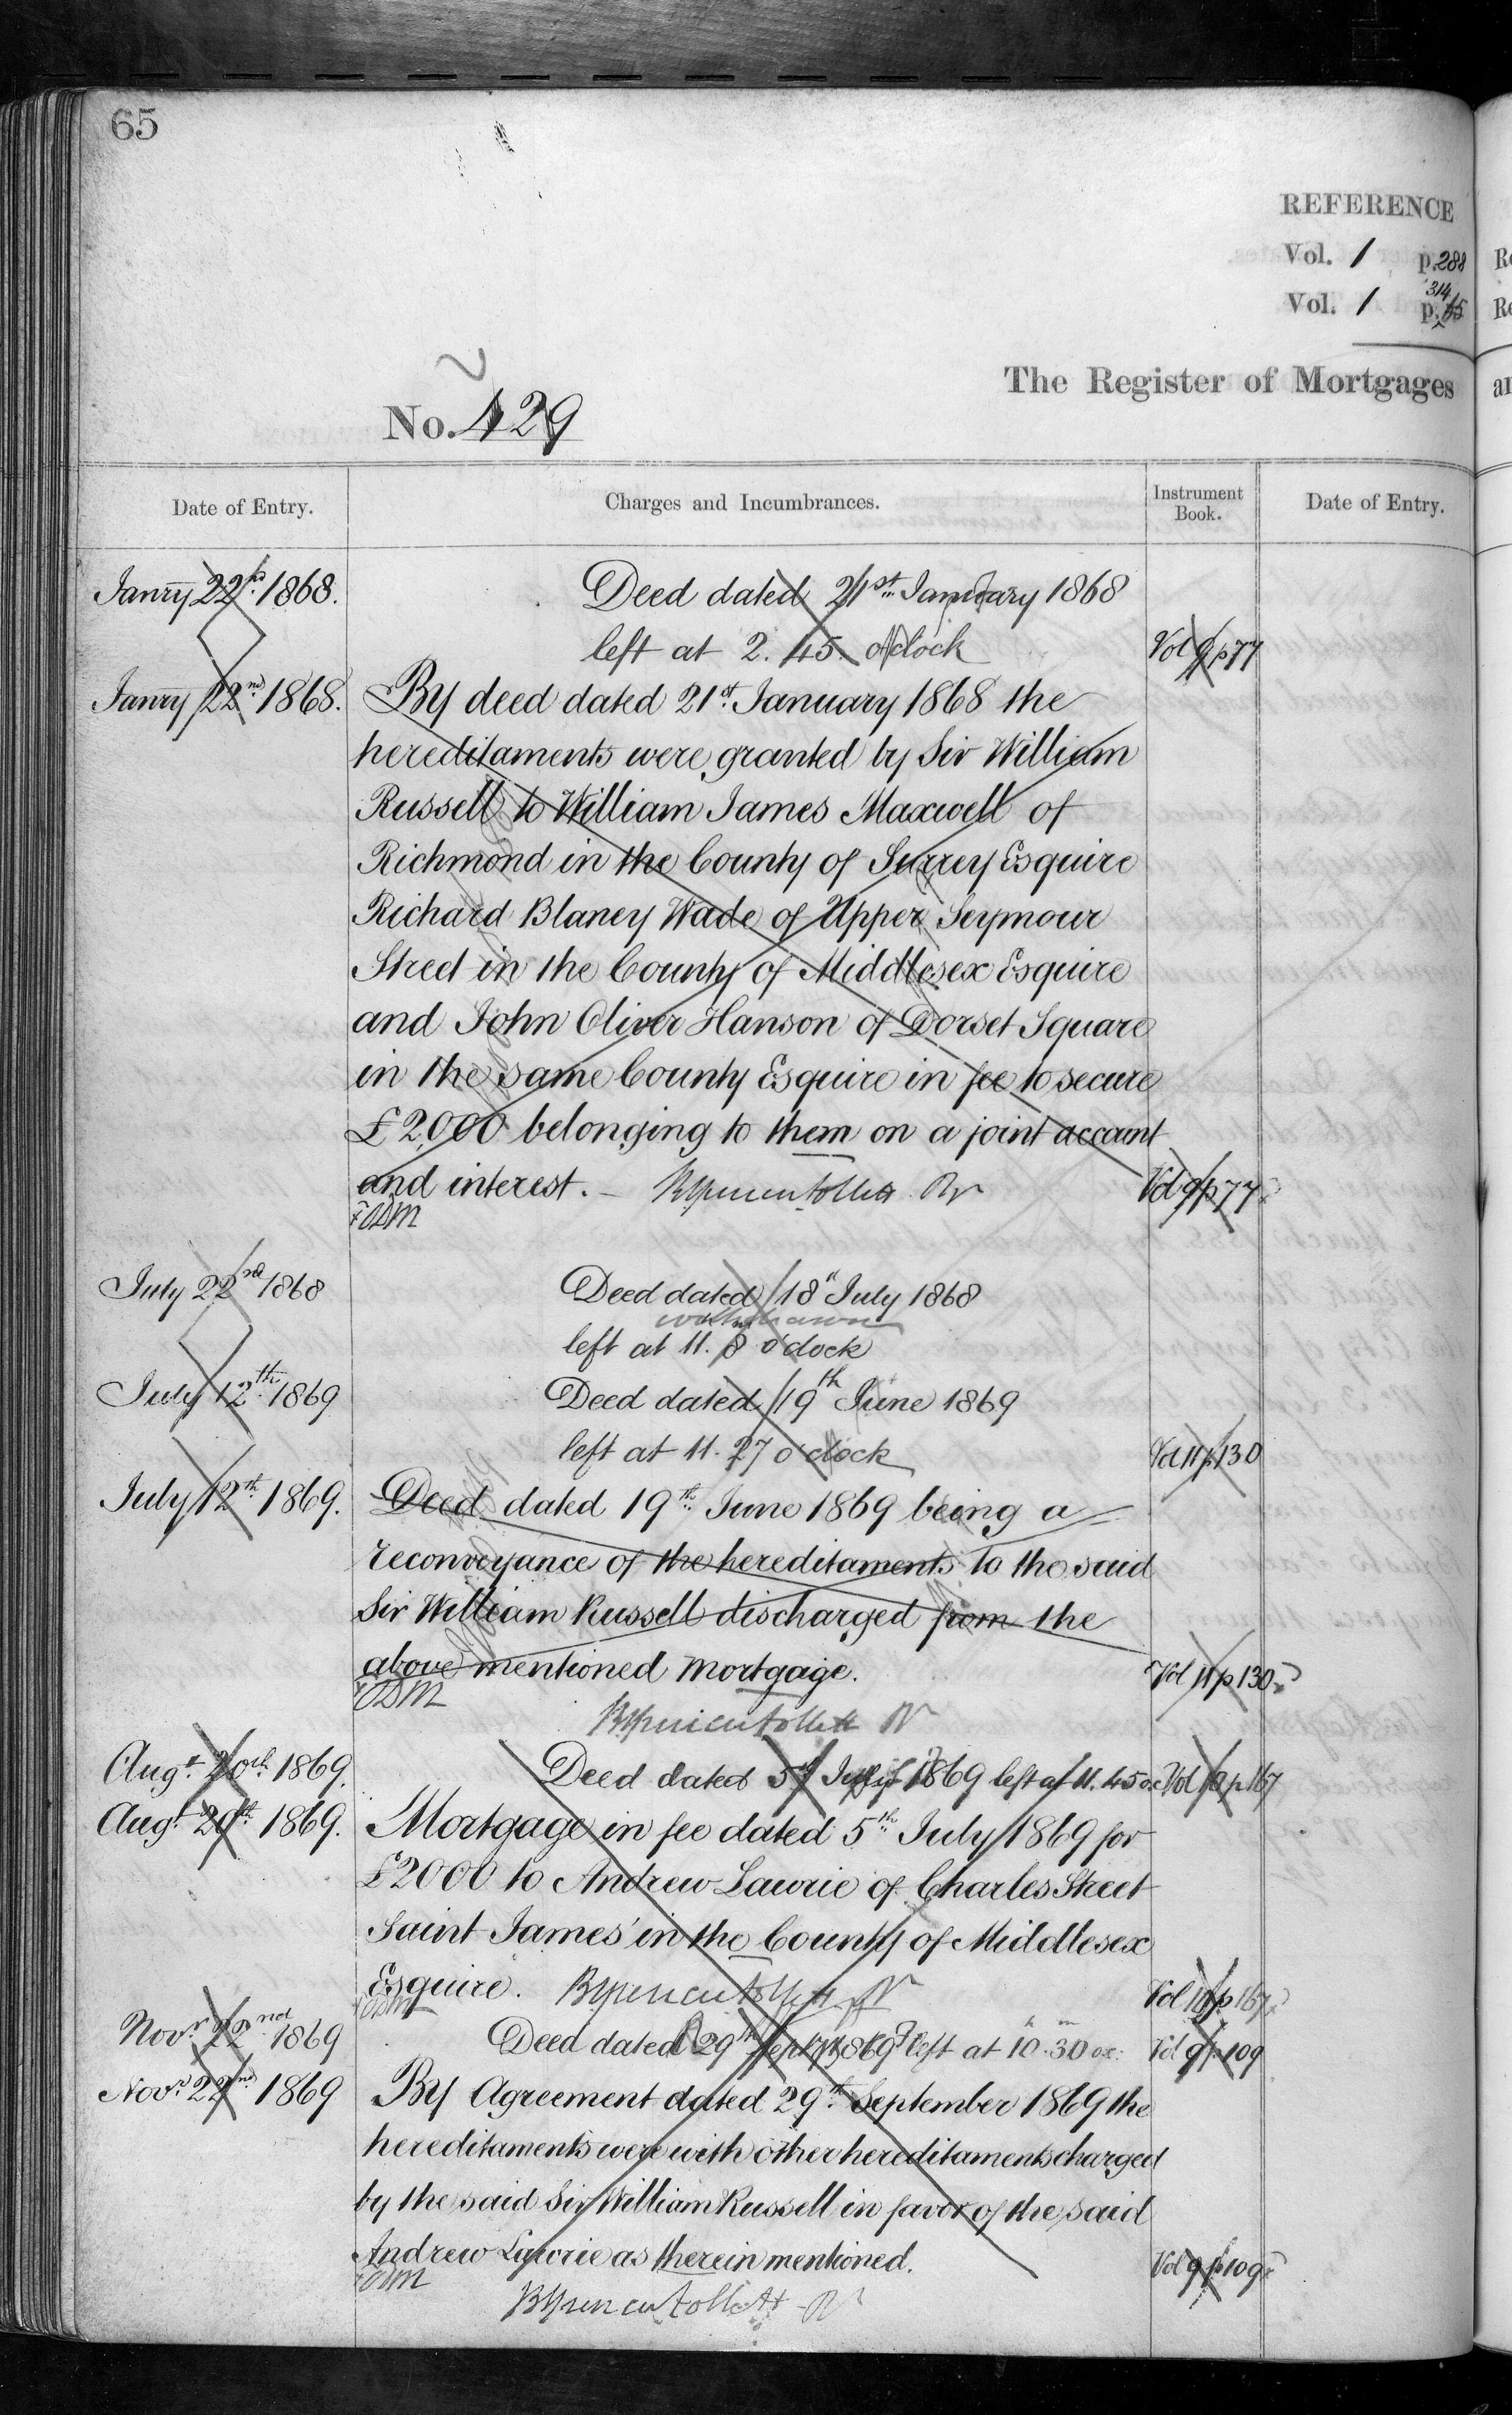 65
REFERENCE
Vol. 1 p. 288
Vol. 1 p. 314 65
The Register of Mortgages
No. 429
Date of Entry.
Charges and Incumbrances.
Instrument Book.
Date of Entry.
Janry 22nd 1868.
Deed dated 21st January 1868
left at 2. 45. o'clock
Vol 9 p 77
Janry 22nd 1868.
By deed dated 21st January 1868 the
hereditaments were granted by Sir William
Russell to William James Maxwell of
Richmond in the County of Surrey Esquire
Richard Blaney Wade of Upper Seymour
Street in the County of Middlesex Esquire
and John Oliver Hanson of Dorset Square
in the same County Esquire in fee to secure
£2,000 belonging to them on a joint account
and interest. –
Vol 9 p 77
July 22nd 1868
Deed dated 18th July 1868
withdrawn
left at 11. 8 o'clock
July 12th 1869
Deed dated 19th June 1869
left at 11. 27 o'clock
Vol 11 p 130
July 12th 1869.
Deed dated 19th June 1869 being a
reconveyance of the hereditaments to the said
Sir William Russell discharged from the
above mentioned mortgage.
Vol 11 p 130
Augt 20th 1869.
Deed dated 5th July 1869 left at 11. 45 oc
Vol 10 p 167
Augt 20th 1869.
Mortgage in fee dated 5th July 1869 for
£2000 to Andrew Lawrie of Charles Street
Saint James' in the County of Middlesex
Esquire.
Vol 10 p 167
Novr 22nd 1869
Deed dated 29th Sept 1869 left at 10h 30m oc:
Vol 9 p 109
Novr 22nd 1869
By Agreement dated 29th September 1869 the
hereditaments were with other hereditaments charged
by the said Sir William Russell in favor of the said
Andrew Lawrie as therein mentioned.
Vol 9 p 109